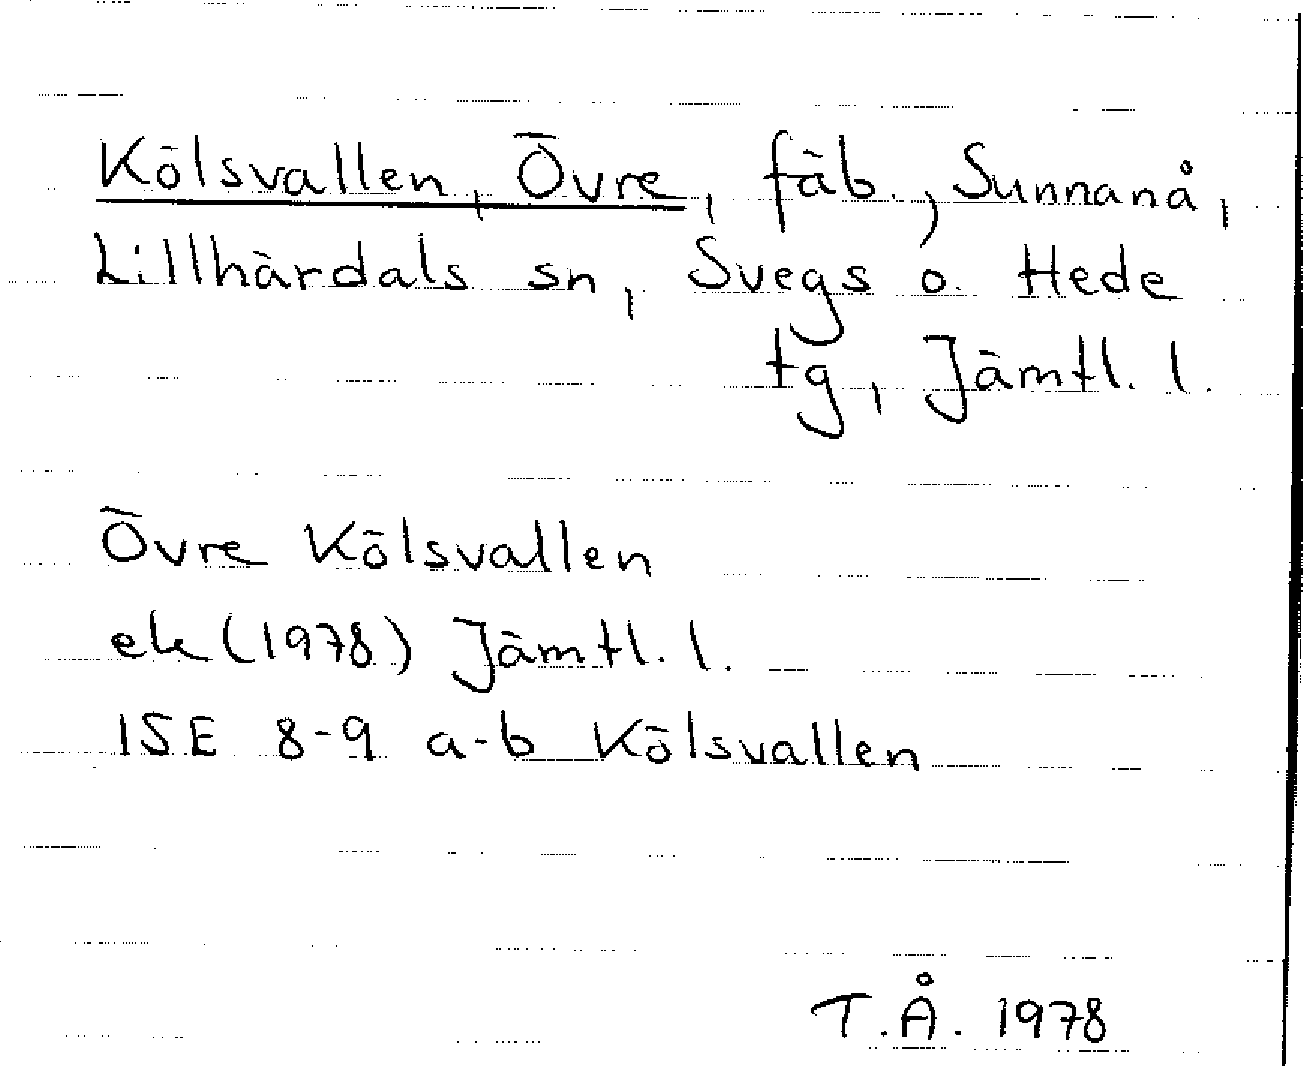 Kölsvallen, Övre, fäb., Sunnanå,
Lillhärdals sn, Svegs o. Hede
tg, Jämtl. l.
Övre Kölsvallen
ek (1978) Jämtl. l.
15E 8-9 a-b Kölsvallen
T.Å. 1978